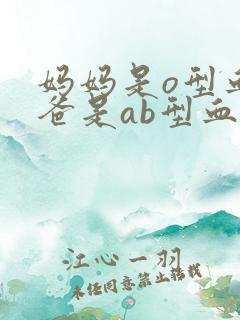 妈妈是o型血
爸是ab型血
江心一羽
未经同意禁止转载